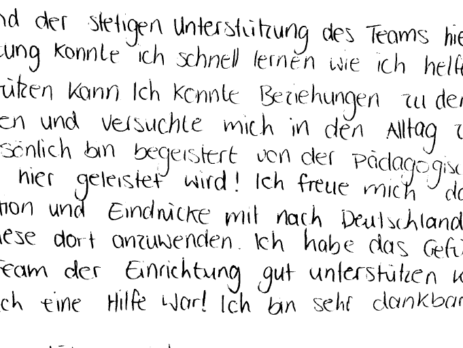 nd der stetigen Unterstützung des Teams hie
ung konnte ich schnell lernen wie ich helf
ützen kann Ich konnte Beziehungen zu der
en und versuchte mich in den Alltag
sönlich bin begeistert von der Pädagogisc
hier geleistet wird! Ich freue mich da
tion und Eindrücke mit nach Deutschland
iese dort anzuwenden. Ich habe das Gefü
Team der Einrichtung gut unterstützen k
ch eine Hilfe war! Ich bin sehr dankbar